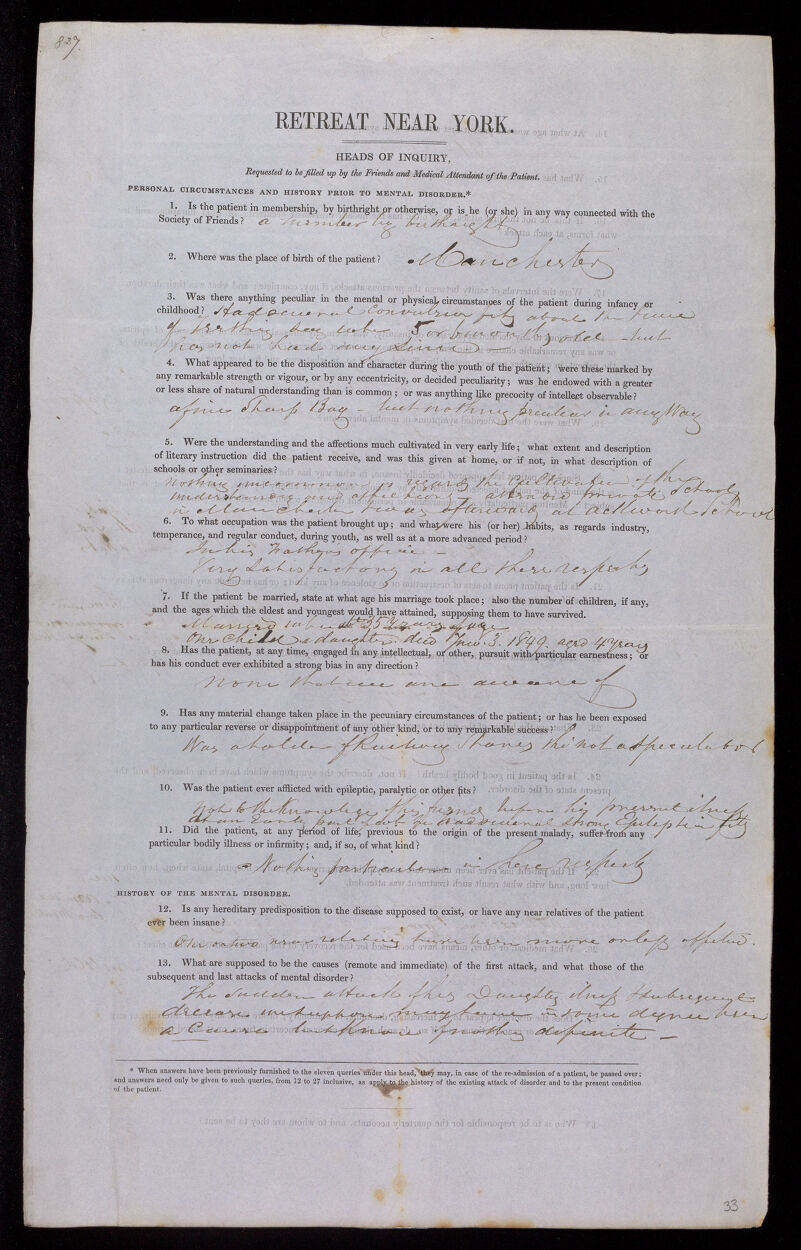 827.
RETREAT NEAR YORK.
HEADS OF INQUIRY,
Requested to be filled up by the Friends and Medical Attendant of the Patient.
PERSONAL CIRCUMSTANCES AND HISTORY PRIOR TO MENTAL DISORDER.*
1. Is the patient in membership, by birthright or otherwise, or is he (or she) in any way connected with the
Society of Friends? a member by birthright
2. Where was the place of birth of the patient? Manchester
3. Was there anything peculiar in the mental or physical circumstances of the patient during infancy or
childhood? Had several Convulsive fits about the time
of teething say when 5 or 6 months old – but
has not had any since –
4. What appeared to be the disposition and character during the youth of the patient; were these marked by
any remarkable strength or vigour, or by any eccentricity, or decided peculiarity; was he endowed with a greater
or less share of natural understanding than is common; or was anything like precocity of intellect observable?
a fine Sharp Boy – but nothing peculiar in any Way
5. Were the understanding and the affections much cultivated in very early life; what extent and description
of literary instruction did the patient receive, and was this given at home, or if not, in what description of
schools or other seminaries?
Nothing uncommon as regards the cultivation of the
understanding and affections – attended private School
in Manchester & was afterward at Ackworth School
6. To what occupation was the patient brought up; and what were his (or her) habits, as regards industry,
temperance, and regular conduct, during youth, as well as at a more advanced period?
In his Fathers office –
Very Satisfactory in all these respects
7. If the patient be married, state at what age his marriage took place; also the number of children, if any,
and the ages which the eldest and youngest would have attained, supposing them to have survived.
Married when 35 years of age
One child a daughter. died 3. 1849. aged 4 years
8. Has the patient, at any time, engaged in any intellectual, or other, pursuit with particular earnestness; or
has his conduct ever exhibited a strong bias in any direction?
None that we are aware of
9. Has any material change taken place in the pecuniary circumstances of the patient; or has he been exposed
to any particular reverse or disappointment of any other kind, or to any remarkable success?
Was a holder of Railway Shares tho' not a Speculator
10. Was the patient ever afflicted with epileptic, paralytic or other fits?
Not to the Knowledge of his friends before his present illness
at an Early part of wh he had several strong Epileptic fits
11. Did the patient, at any period of life, previous to the origin of the present malady, suffer from any
particular bodily illness or infirmity; and, if so, of what kind?
Nothing particular in these respects
HISTORY OF THE MENTAL DISORDER.
12. Is any hereditary predisposition to the disease supposed to exist, or have any near relatives of the patient
ever been insane?
One or two near relatives have been more or less affected.
13. What are supposed to be the causes (remote and immediate) of the first attack, and what those of the
subsequent and last attacks of mental disorder?
The Sudden attack of his Daughters illness & subsequent
decease may have in some degree been
a Cause but know of nothing definite –
* When answers have been previously furnished to the eleven queries under this head, they may, in case of the re-admission of a patient, be passed over;
and answers need only be given to such queries, from 12 to 27 inclusive, as apply to the history of the existing attack of disorder and to the present condition
of the patient.
33